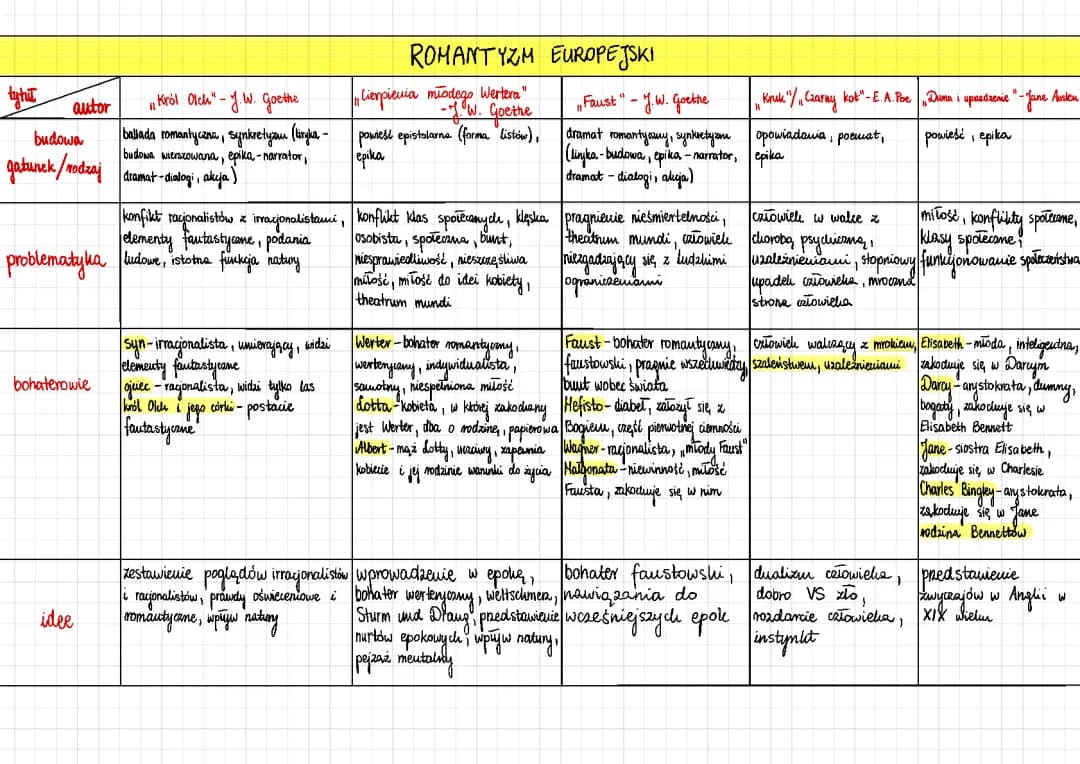 ROMANTYZM EUROPEJSKI
tytuł
autor
„Król Olch" - J.W. Goethe
„Cierpienia młodego Wertera"
- J.W. Goethe
„Faust" - J.W. Goethe
„Kruk"/„Czarny kot" - E.A. Poe
„Duma i uprzedzenie" - Jane Austen
budowa
gatunek/rodzaj
ballada romantyczna, synkretyzm (liryka -
budowa wierszowana, epika - narrator,
dramat - dialogi, akcja)
powieść epistolarna (forma listów),
epika
dramat romantyczny, synkretyzm
(liryka - budowa, epika - narrator,
dramat - dialogi, akcja)
opowiadania, poemat,
epika
powieść, epika
problematyka
konfikt racjonalistów z irracjonalistami,
elementy fantastyczne, podania
ludowe, istotna funkcja natury
konflikt klas społecznych, klęska
osobista, społeczna, bunt,
niesprawiedliwość, nieszczęśliwa
miłość, miłość do idei kobiety,
theatrum mundi
pragnienie nieśmiertelności,
theatrum mundi, człowiek
niezgadzający się z ludzkimi
ograniczeniami
człowiek w walce z
chorobą psychiczną,
uzależnieniami, stopniowy
upadek człowieka, mroczna
strona człowieka
miłość, konflikty społeczne,
klasy społeczne,
funkcjonowanie społeczeństwa
bohaterowie
syn - irracjonalista, umierający, widzi
elementy fantastyczne
ojciec - racjonalista, widzi tylko las
król Olch i jego córki - postacie
fantastyczne
Werter - bohater romantyczny,
werteryczny, indywidualista,
samotny, niespełniona miłość
Lotta - kobieta, w której zakochany
jest Werter, dba o rodzinę, papierowa
Albert - mąż Lotty, uczciwy, zapewnia
kobiecie i jej rodzinie warunki do życia
Faust - bohater romantyczny,
faustowski, pragnie wszechwiedzy,
bunt wobec świata
Mefisto - diabeł, założył się z
Bogiem, część pierwotnej ciemności
Wagner - racjonalista, „młody Faust"
Małgorzata - niewinność, miłość
Fausta, zakochuje się w nim
człowiek walczący z mrokiem,
szaleństwem, uzależnieniami
Elisabeth - młoda, inteligentna,
zakochuje się w Darcym
Darcy - arystokrata, dumny,
bogaty, zakochuje się w
Elisabeth Bennett
Jane - siostra Elisabeth,
zakochuje się w Charlesie
Charles Bingley - arystokrata,
zakochuje się w Jane
rodzina Bennettów
idee
zestawienie poglądów irracjonalistów
i racjonalistów, prawdy oświeceniowe i
romantyczne, wpływ natury
wprowadzenie w epokę,
bohater werteryczny, weltschmerz,
Sturm und Drang, przedstawienie
nurtów epokowych, wpływ natury,
pejzaż mentalny
bohater faustowski,
nawiązania do
wcześniejszych epok
dualizm człowieka,
dobro VS zło,
rozdarcie człowieka,
instynkt
przedstawienie
zwyczajów w Anglii w
XIX wieku